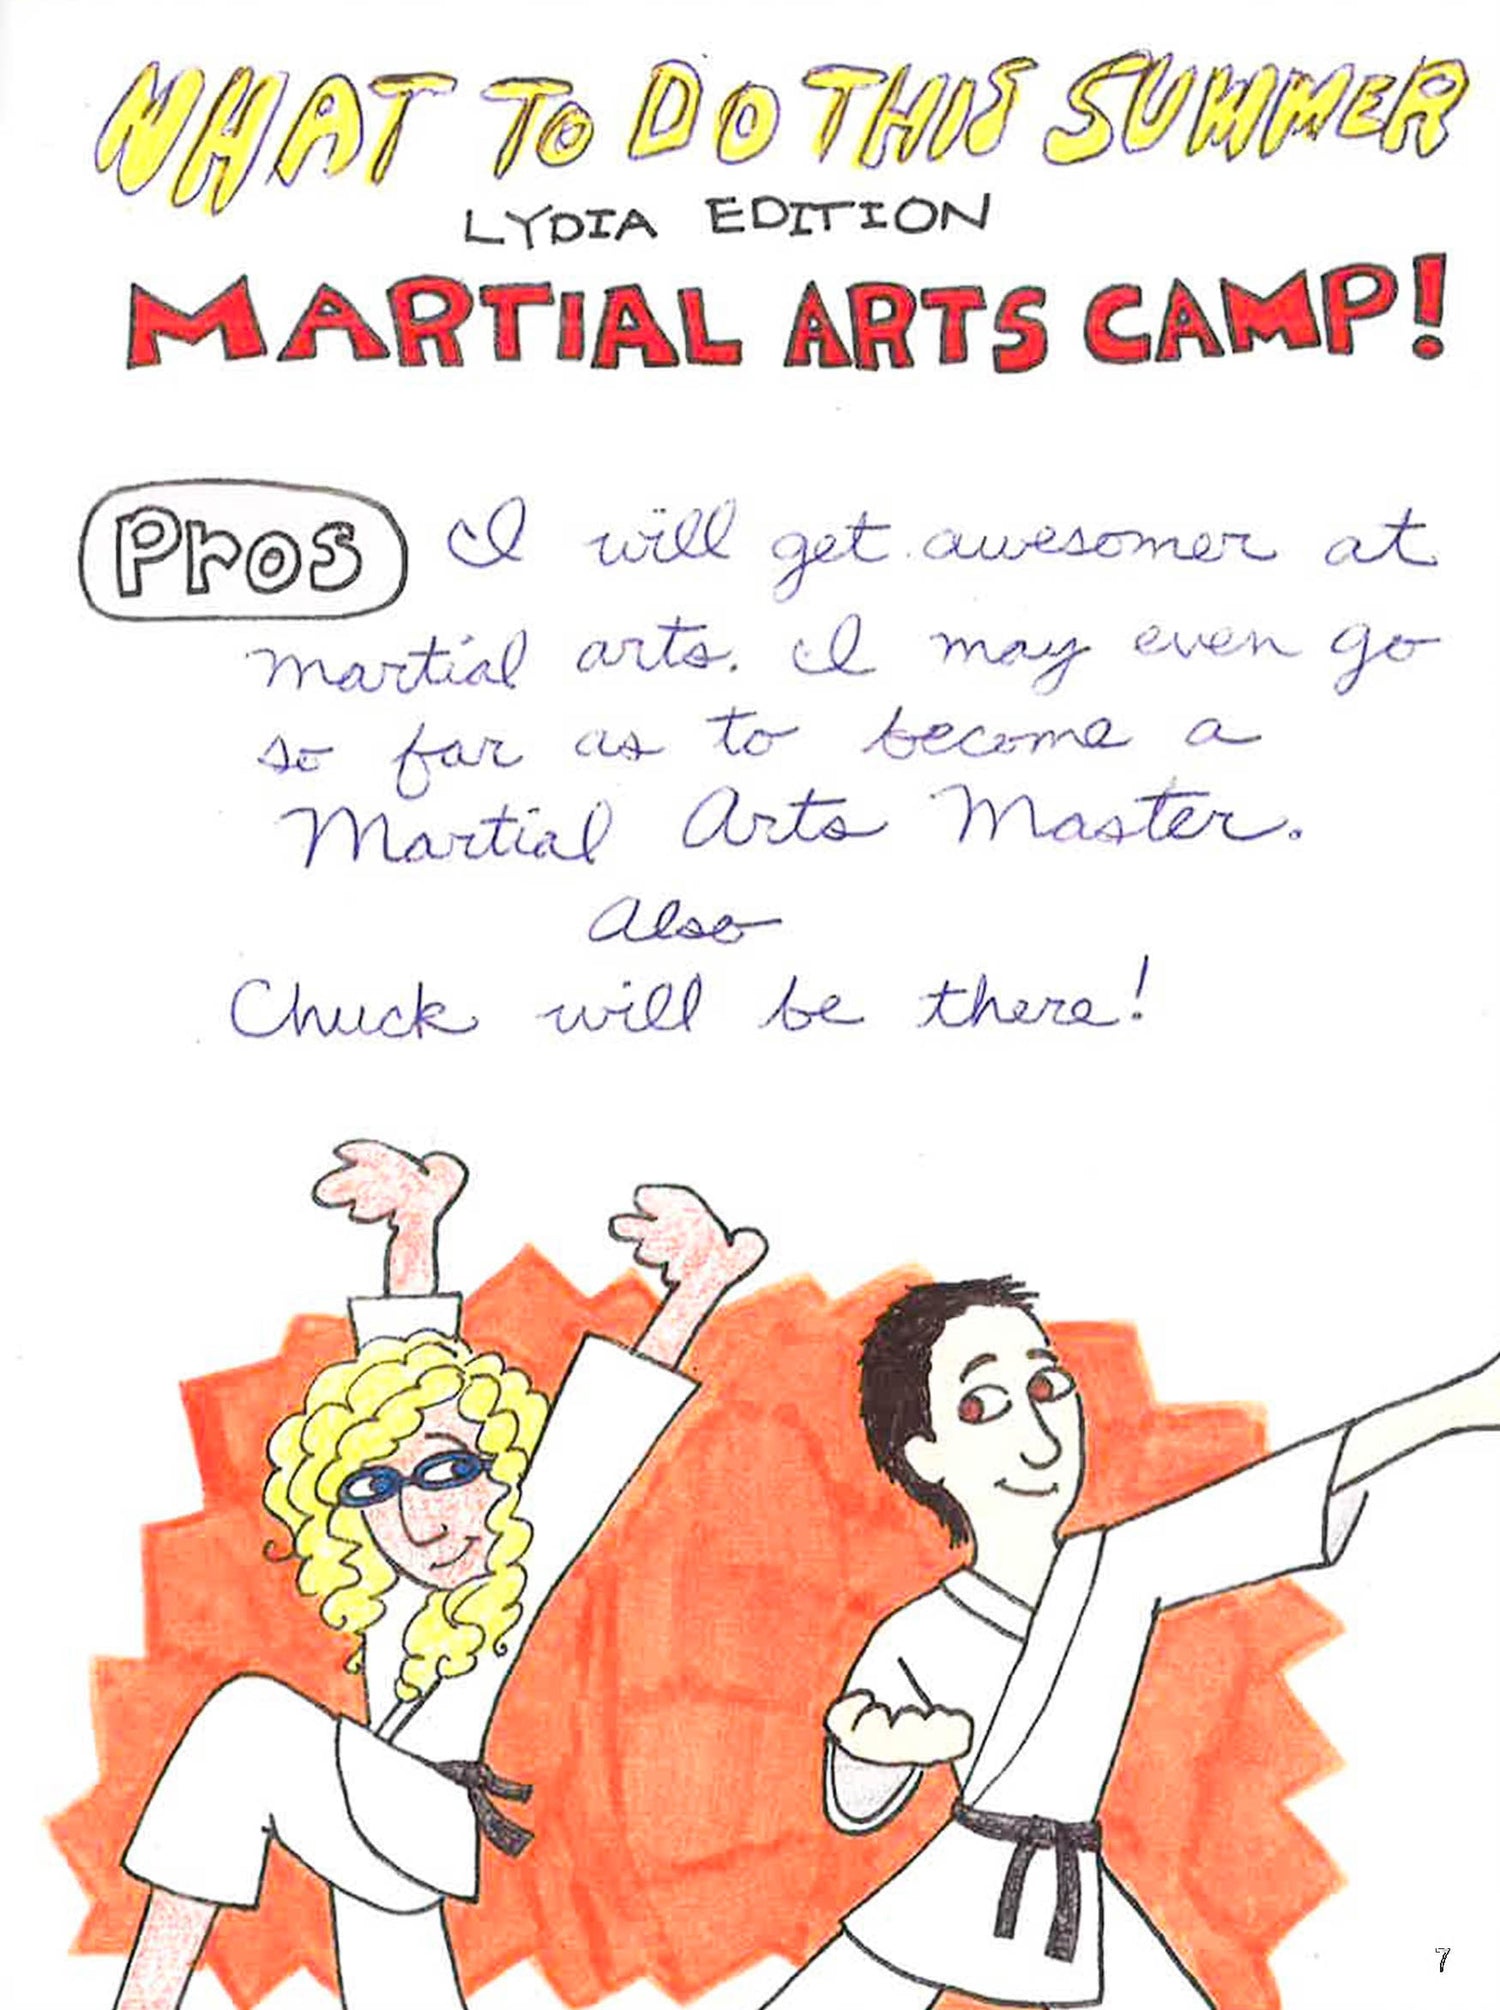 WHAT TO DO THIS SUMMER
LYDIA EDITION
MARTIAL ARTS CAMP!
Pros I will get awesomer at
martial arts. I may even go
so far as to become a
Martial Arts Master.
Also
Chuck will be there!
7